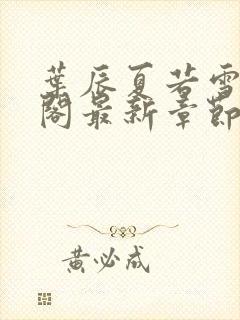 葉辰夏若雪
閣最新章節
黃必成